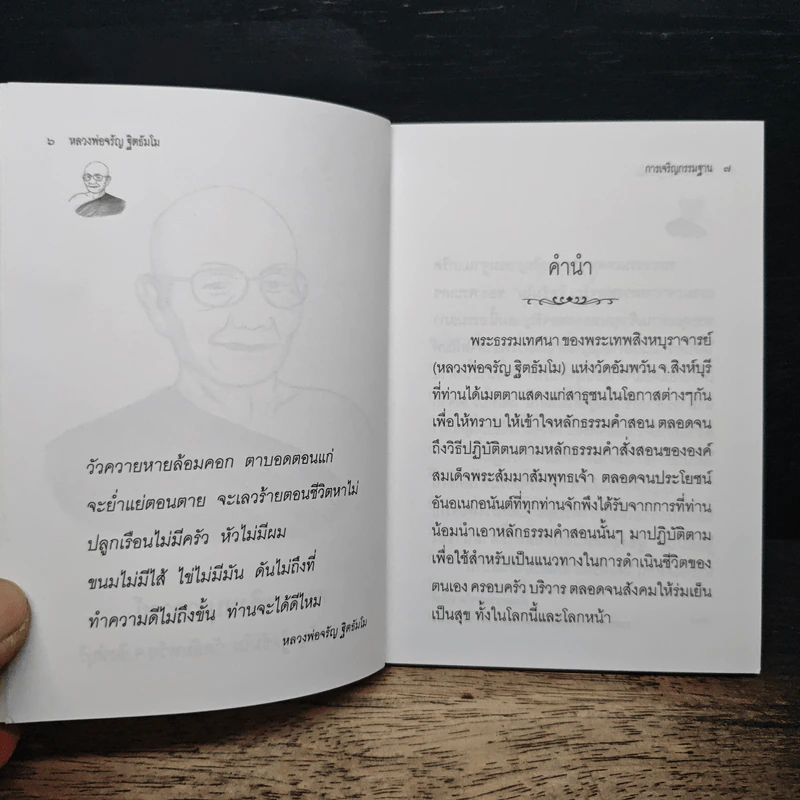 ๖ หลวงพ่อจรัญ ฐิตธัมโม
วัวควายหายล้อมคอก ตาบอดตอนแก่
จะย่ำแย่ตอนตาย จะเลวร้ายตอนชีวิตหาไม่
ปลูกเรือนไม่มีครัว หัวไม่มีผม
ขนมไม่มีไส้ ไข่ไม่มีมัน ดันไม่ถึงที่
ทำความดีไม่ถึงขั้น ท่านจะได้ดีไหม
หลวงพ่อจรัญ ฐิตธัมโม
การเจริญกรรมฐาน ๗
คำนำ
พระธรรมเทศนา ของพระเทพสิงหบุราจารย์
(หลวงพ่อจรัญ ฐิตธัมโม) แห่งวัดอัมพวัน จ.สิงห์บุรี
ที่ท่านได้เมตตาแสดงแก่สาธุชนในโอกาสต่างๆกัน
เพื่อให้ทราบ ให้เข้าใจหลักธรรมคำสอน ตลอดจน
ถึงวิธีปฏิบัติตนตามหลักธรรมคำสั่งสอนขององค์
สมเด็จพระสัมมาสัมพุทธเจ้า ตลอดจนประโยชน์
อันอเนกอนันต์ที่ทุกท่านจักพึงได้รับจากการที่ท่าน
น้อมนำเอาหลักธรรมคำสอนนั้นๆ มาปฏิบัติตาม
เพื่อใช้สำหรับเป็นแนวทางในการดำเนินชีวิตของ
ตนเอง ครอบครัว บริวาร ตลอดจนสังคมให้ร่มเย็น
เป็นสุข ทั้งในโลกนี้และโลกหน้า